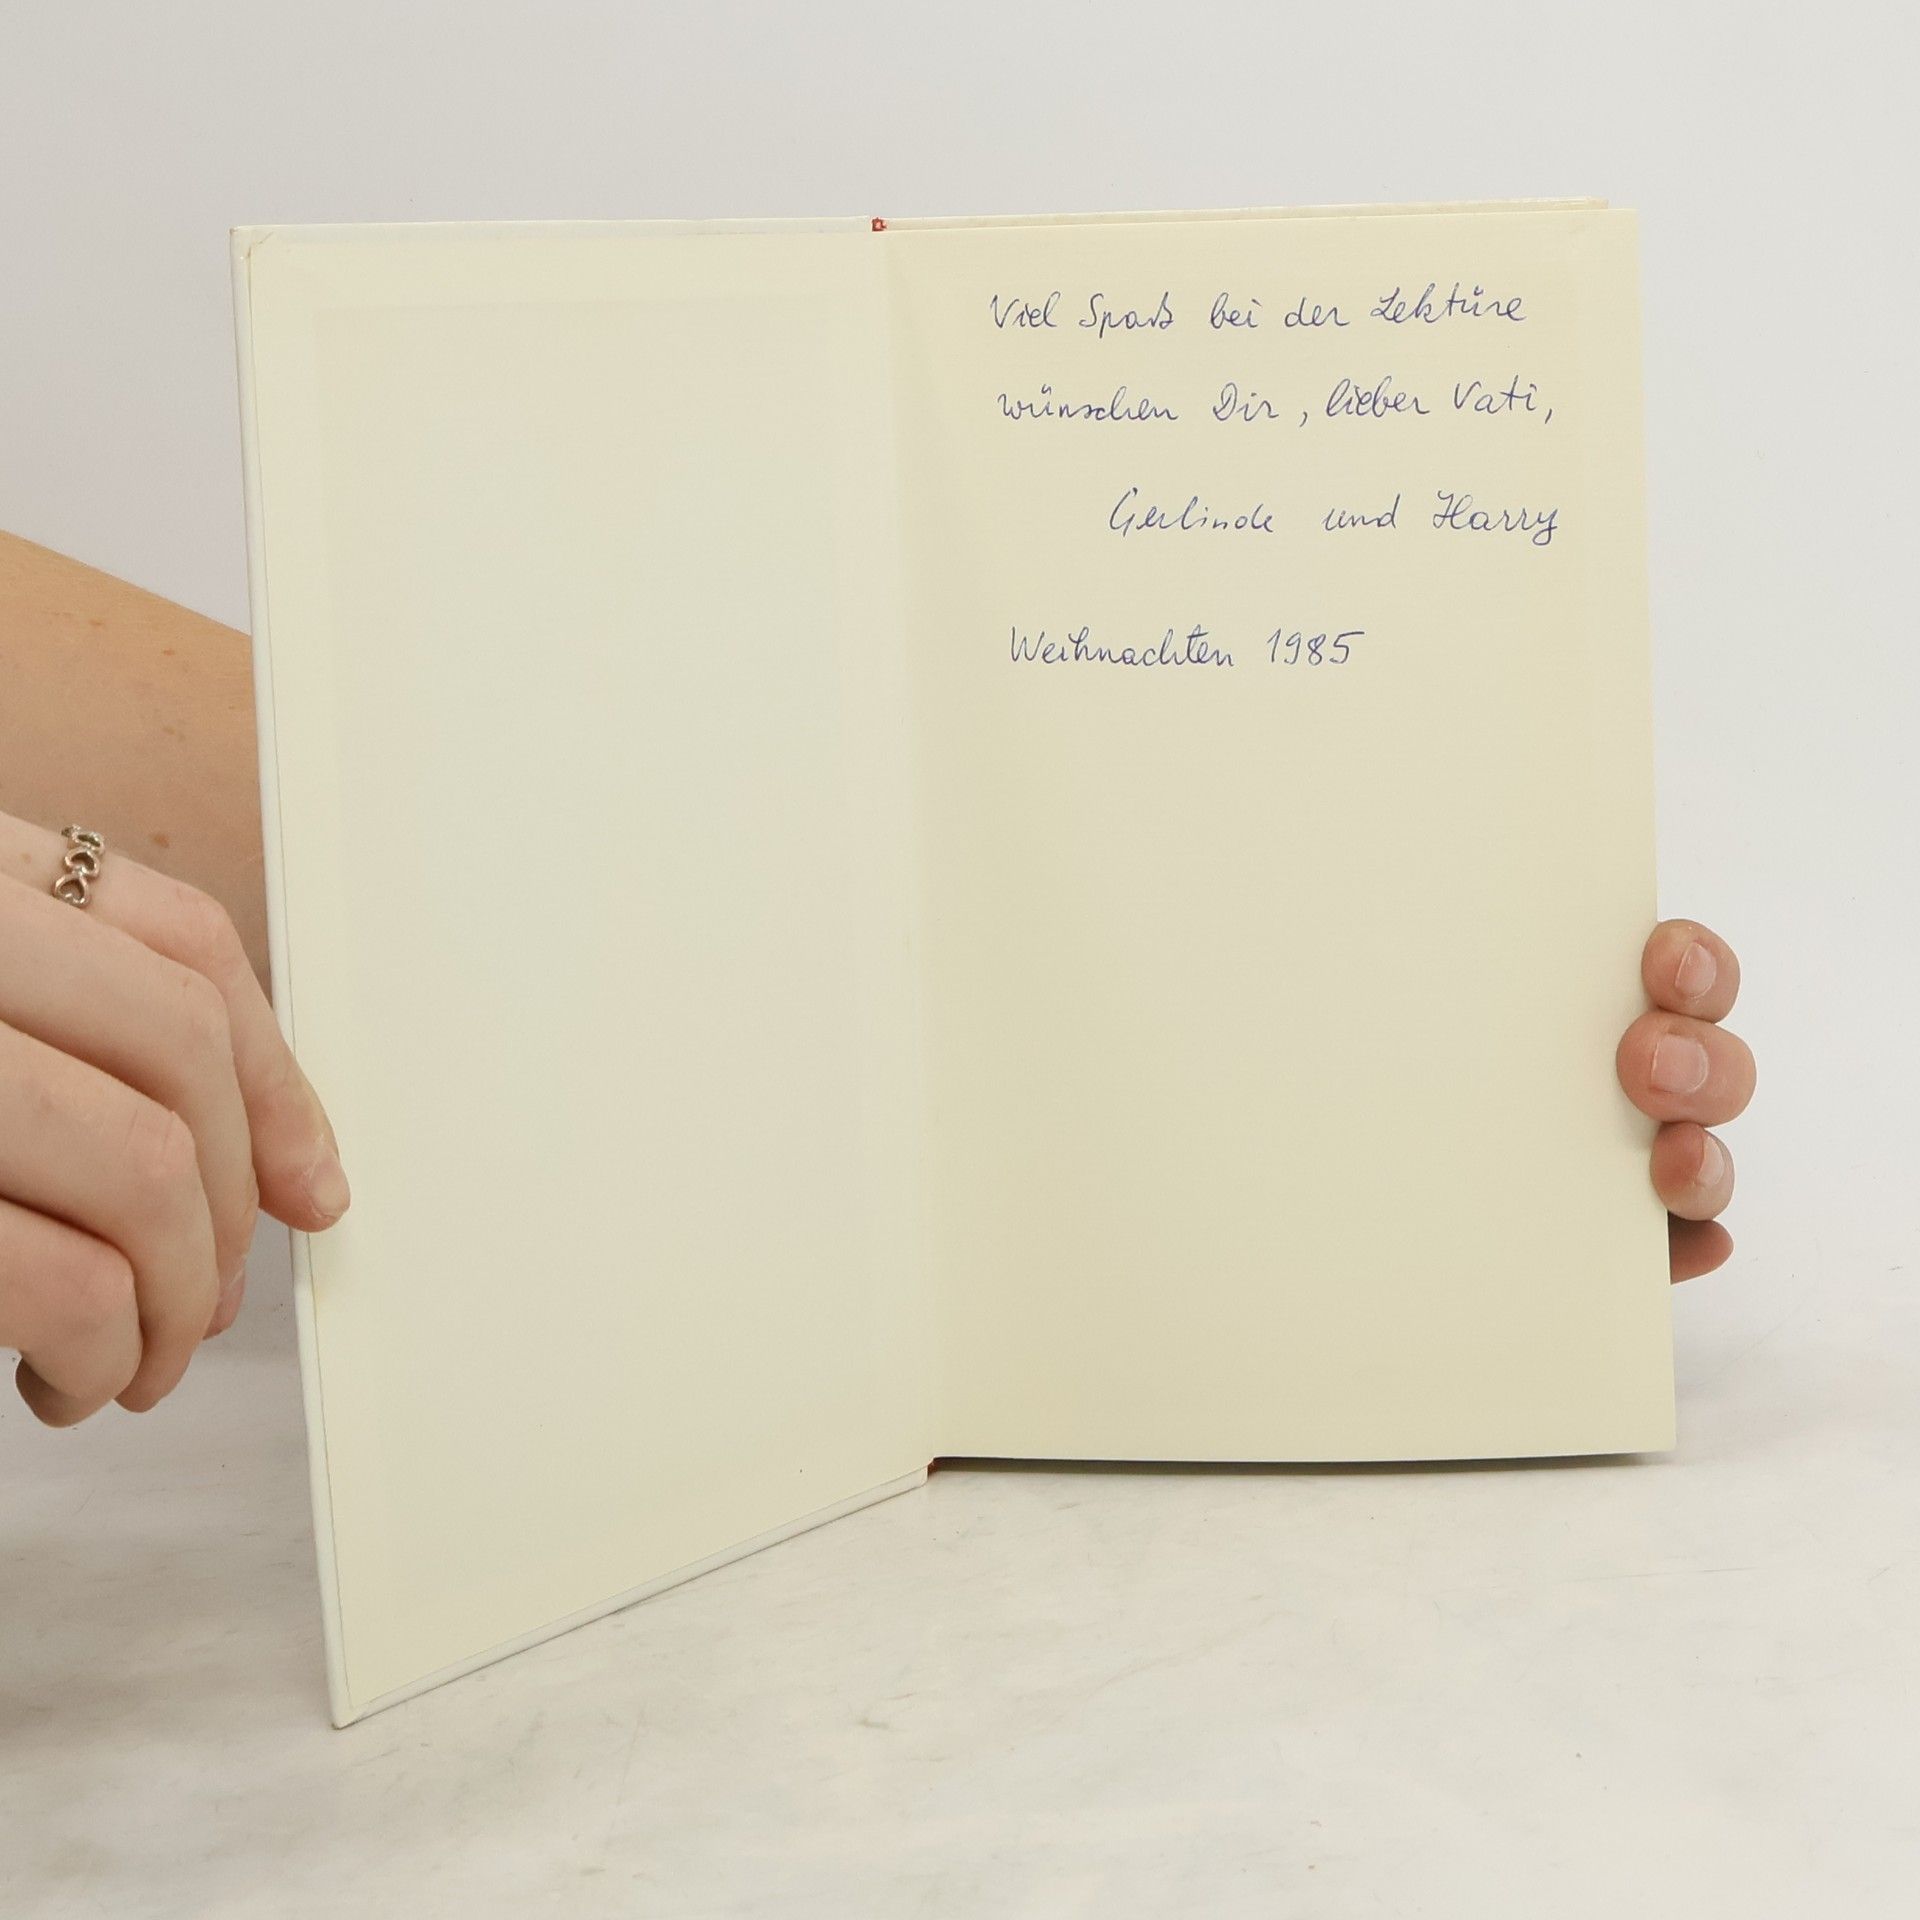 Viel Spaß bei der Lektüre
wünschen Dir, lieber Vati,
Gerlinde und Harry
Weihnachten 1985